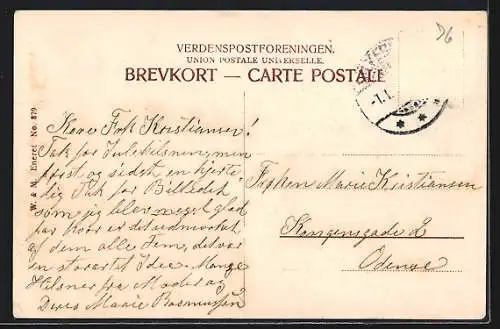 VERDENSPOSTFORENINGEN.
UNION POSTALE UNIVERSELLE.
BREVKORT — CARTE POSTALE
W. & M. Eneret No. 879
76
-7.1.
Kære Frk Kristiansen!
Tak for Julehilsningen men
først og sidst en hjerte-
lig Tak for Billedet
som jeg blev meget glad
for hvor er det udmærket
af dem alle fem, det var
en storartet Idee. Mange
Hilsner fra Moder og
Deres Marie Rasmussen
Frøken Marie Kristiansen
Kongensgade 2
Odense